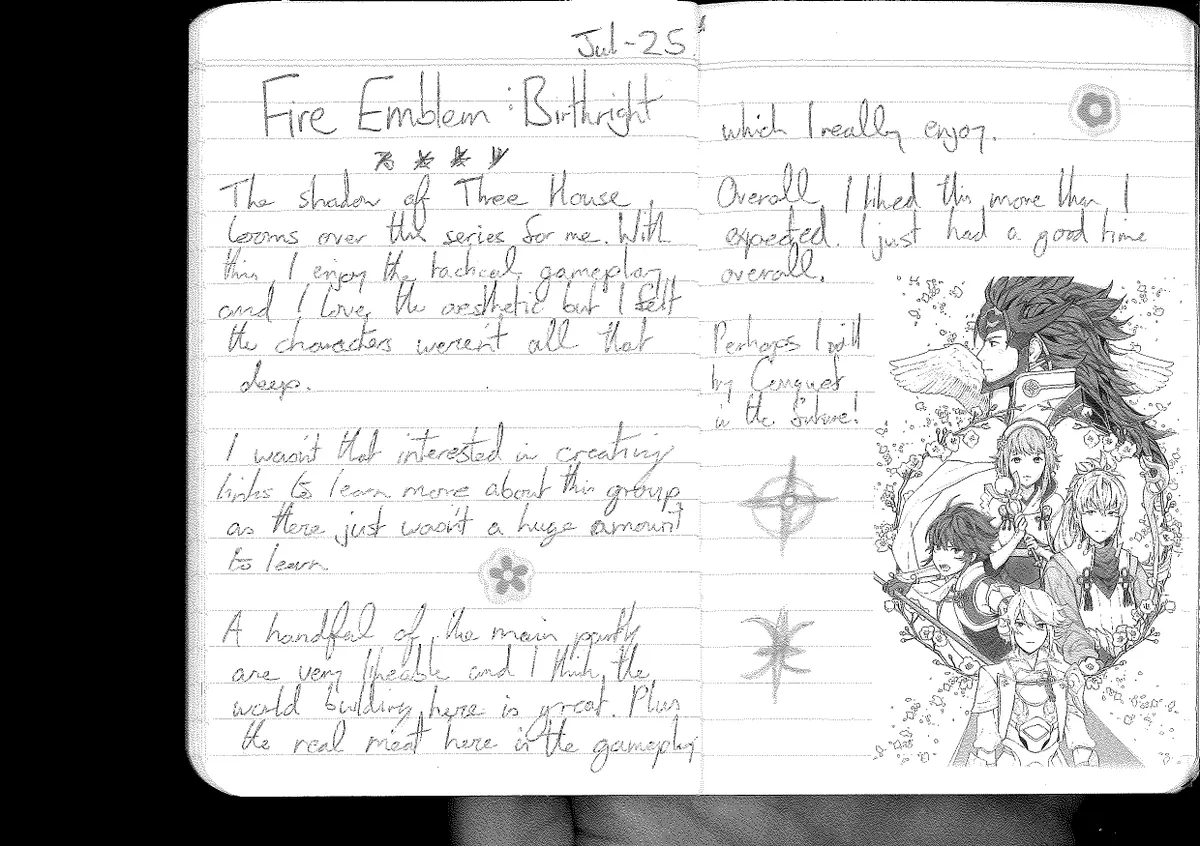 Jul-25
Fire Emblem: Birthright
The shadow of Three House
looms over this series for me. With
this I enjoy the tactical gameplay
and I love the aesthetic but I felt
the characters weren't all that
deep.
I wasn't that interested in creating
links to learn more about this group
as there just wasn't a huge amount
to learn
A handful of the main party
are very likeable and I think the
world building here is great. Plus
the real meat here is the gameplay
which I really enjoy.
Overall I liked this more than I
expected. I just had a good time
overall.
Perhaps I will
try Conquest
in the future!